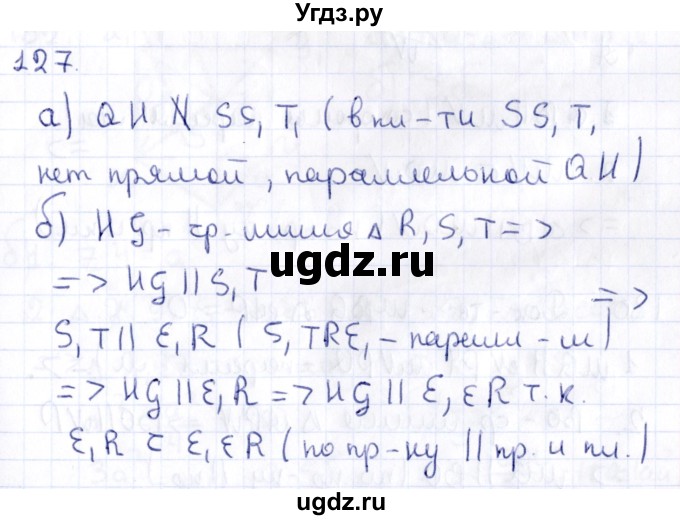 Угдз.ру
127.
а) QH ∦ SS₁T₁ (в пл-ти SS₁T₁
нет прямой, параллельной QH)
б) HG - ср. линия △ R₁S₁T =>
=> HG || S₁T
=>
S₁T || E₁R (S₁TRE₁ - паралл-м)
=> HG || E₁R => HG || E₁ER т.к.
E₁R ⊂ E₁ER (по пр-ку || пр. и пл.)
ugdz.ru
ugdz.ru